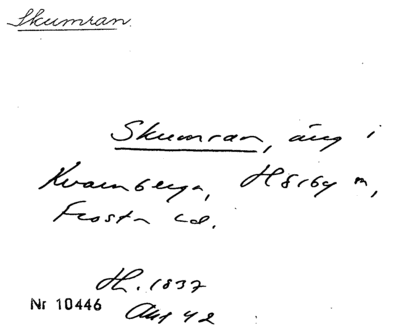 Skumran.
Skumran, äng i
Kvarnberga, Hörby m,
Frosta hd.
H. 1837
Nr 10446
Akt 42